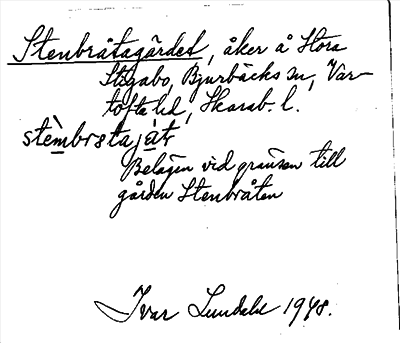 Stenbråtagärdet, åker å Stora
Stigabo, Bjurbäcks sn, Var-
tofta hd, Skarab. l.
Belägen vid gränsen till
gården Stenbråten
Ivar Lundahl 1948.